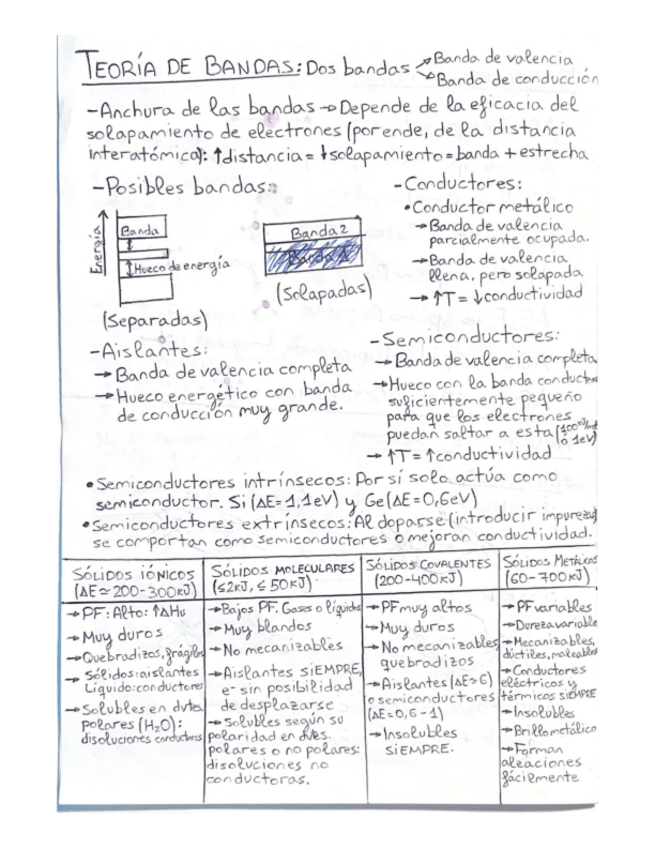 TEORÍA DE BANDAS: Dos bandas
Banda de valencia
Banda de conducción
-Anchura de las bandas → Depende de la eficacia del
solapamiento de electrones (por ende, de la distancia
interatómica): ↑distancia = ↓solapamiento = banda + estrecha
-Posibles bandas:
Energía
Banda
Hueco de energía
(Separadas)
Banda 2
(Solapadas)
-Conductores:
•Conductor metálico
→Banda de valencia
parcialmente ocupada.
→Banda de valencia
llena, pero solapada
→ ↑T = ↓conductividad
-Aislantes:
→ Banda de valencia completa
→ Hueco energético con banda
de conducción muy grande.
-Semiconductores:
→ Banda de valencia completa
→Hueco con la banda
suficientemente pequeño
para que los electrones
puedan saltar a esta
ó 1eV)
→ ↑T = ↑conductividad
•Semiconductores intrínsecos: Por sí solo actúa como
semiconductor. Si (ΔE=1,1eV) y Ge (ΔE=0,6eV)
•Semiconductores extrínsecos: Al doparse (introducir
se comportan como semiconductores o mejoran conductividad.
SÓLIDOS IÓNICOS
(ΔE≃200-300kJ)
→PF: Alto: ↑ΔHu
→Muy duros
→Quebradizos, frágiles
→ Sólidos: aislantes
Líquido: conductores
→Solubles en
polares (H₂O):
disoluciones conductoras
SÓLIDOS MOLECULARES
(≤2kJ, ≤50kJ)
→Bajos PF. Gases o líquidos
→Muy blandos
→No mecanizables
→Aislantes SIEMPRE,
e⁻ sin posibilidad
de desplazarse
→Solubles según su
polaridad en dvtes.
polares o no polares:
disoluciones no
conductoras.
SÓLIDOS COVALENTES
(200-400kJ)
→PF muy altos
→Muy duros
→No mecanizables,
quebradizos
→Aislantes (ΔE≃6)
o semiconductores
(ΔE=0,6-1)
→Insolubles
SIEMPRE.
SÓLIDOS METÁLICOS
(60-700kJ)
→PF variables
→Dureza variable
→Mecanizables,
dúctiles, maleables
→Conductores
eléctricos y
térmicos SIEMPRE
→Insolubles
→Brillo metálico
→Forman
aleaciones
fácilmente